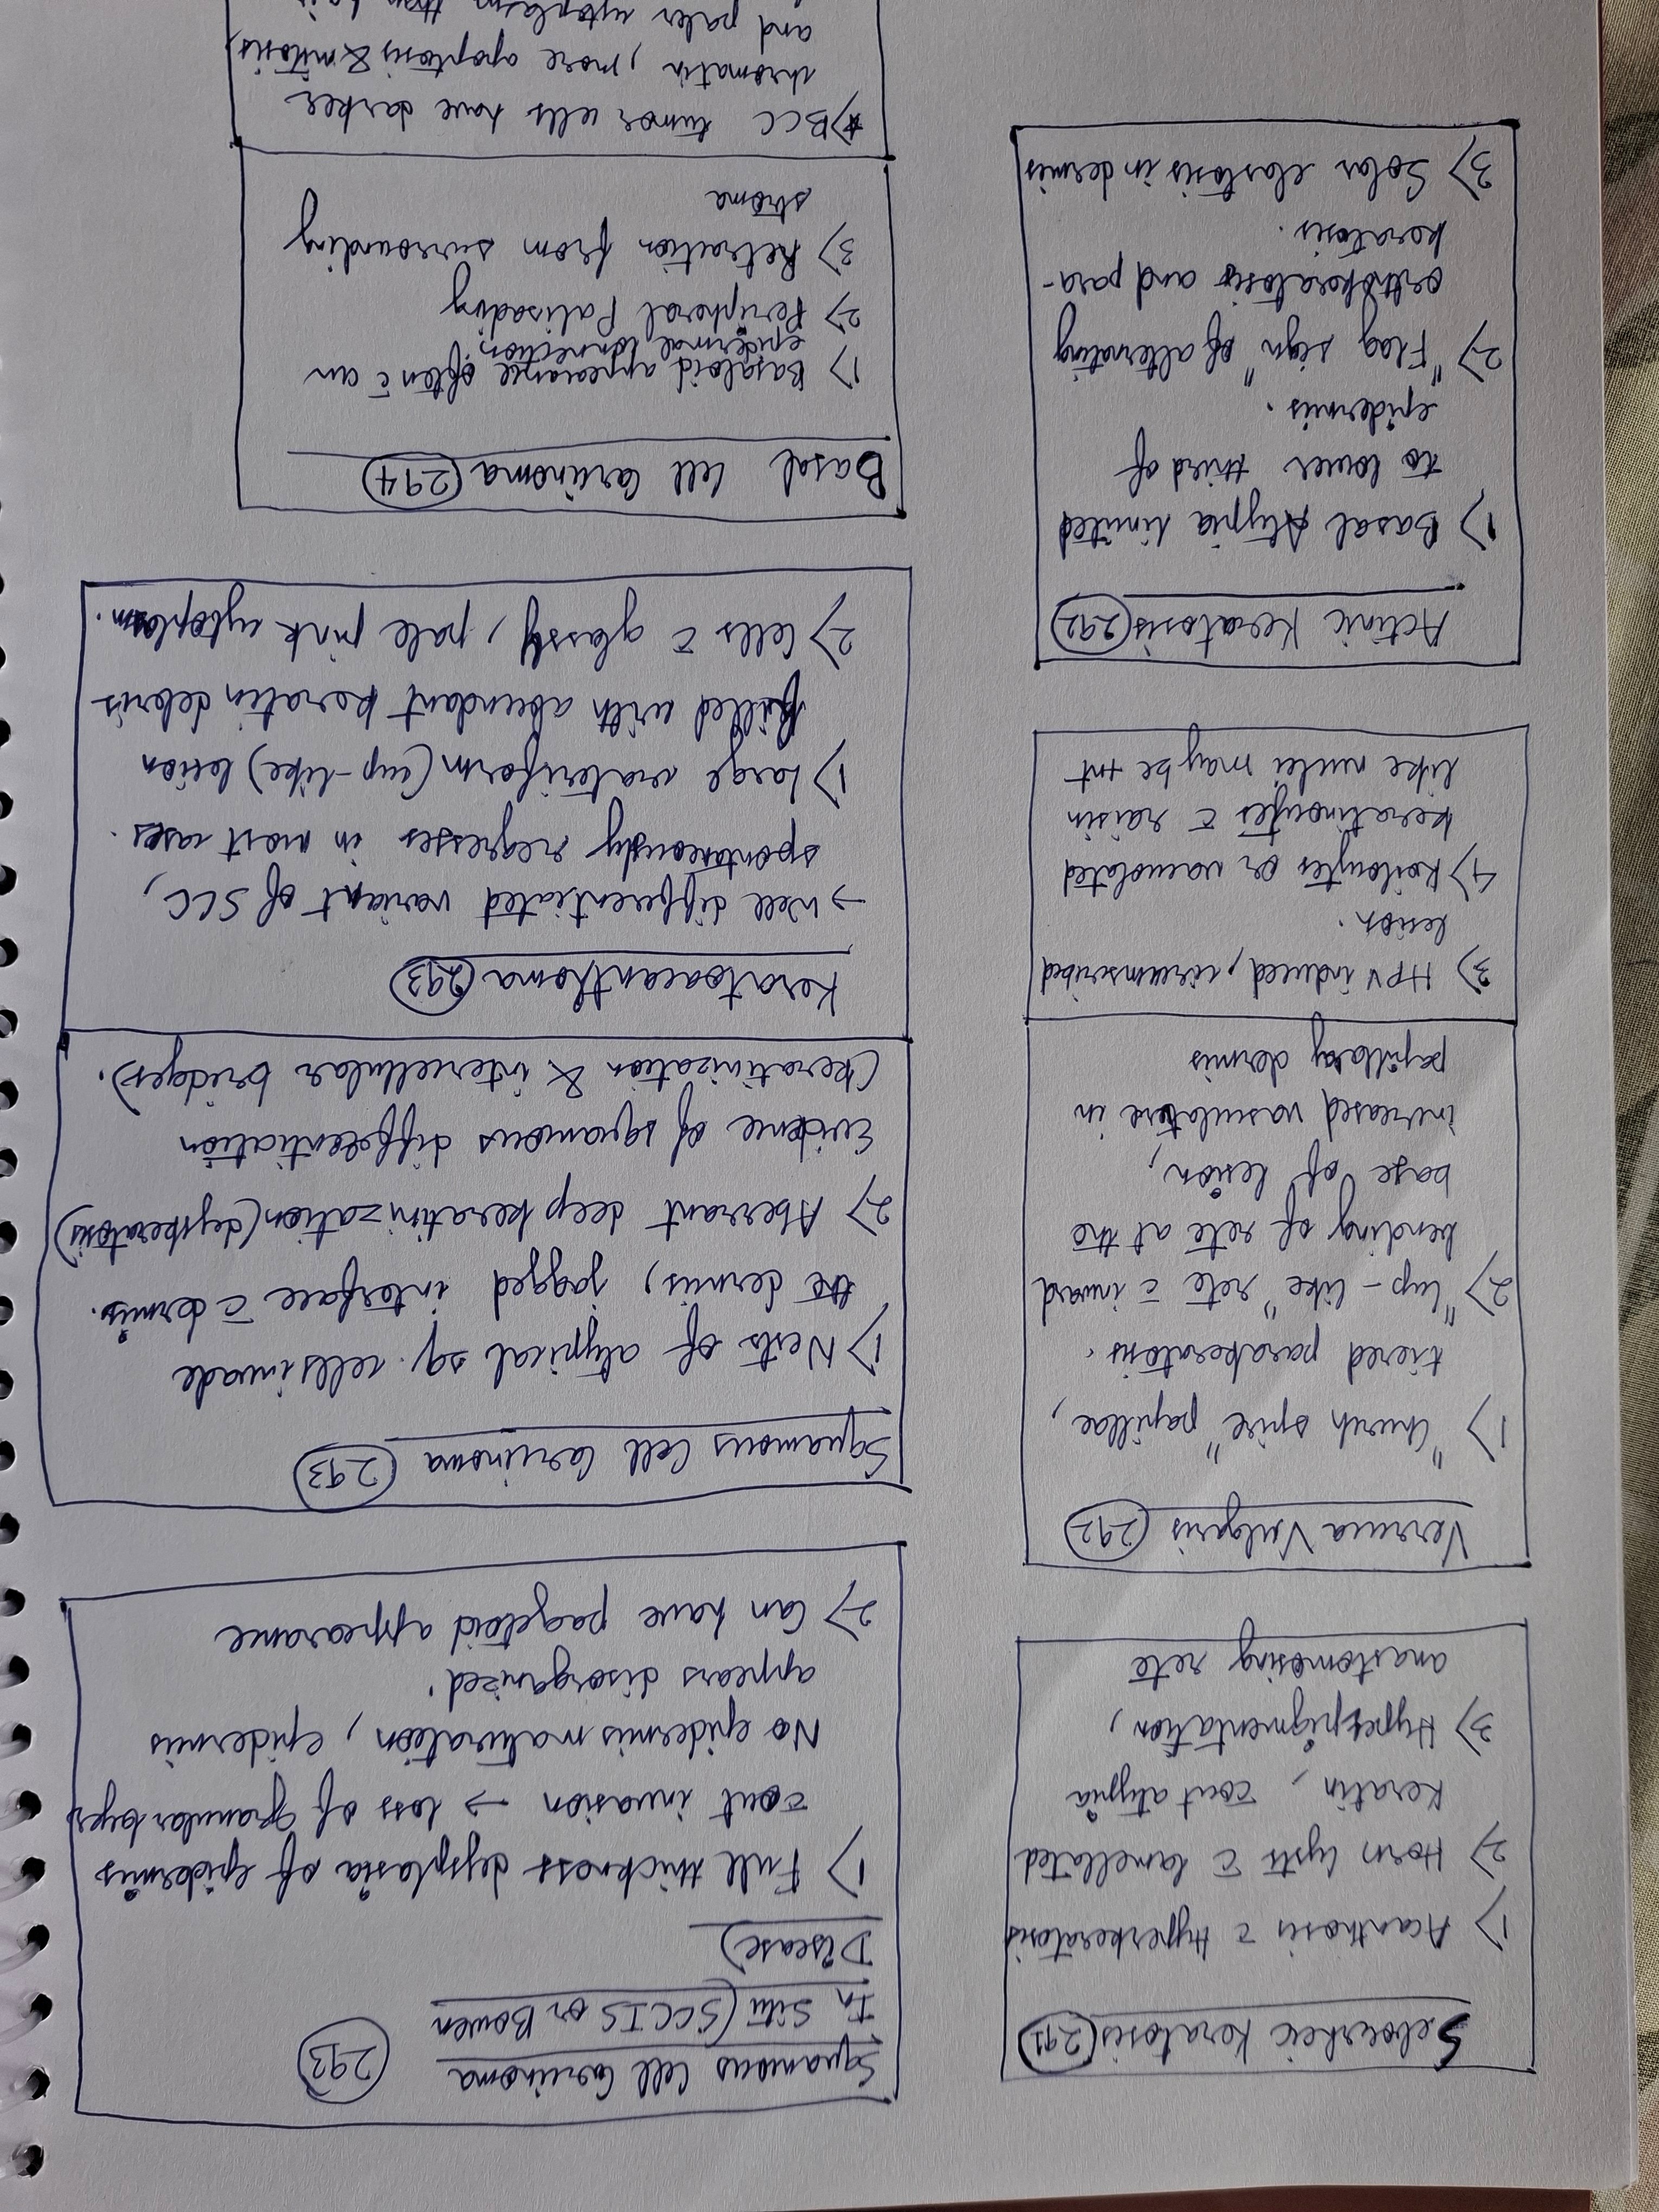 Seborrheic Keratosis (291)
1) Acanthosis c̄ Hyperkeratosis
2) Horn cysts c̄ lamellated
Keratin, c̄out atypia
3) Hyperpigmentation,
anastomosing rete
Verruca Vulgaris (292)
1) "Church spire" papillae,
tiered parakeratosis.
2) "Cup-like" rete c̄ inward
bending of rete at the
base of lesion,
increased vasculature in
papillary dermis
3) HPV induced, circumscribed
lesion.
4) Koilocytes or vacuolated
keratinocytes c̄ raisin
like nuclei may be +nt
Actinic Keratosis (292)
1) Basal Atypia limited
to lower third of
epidermis.
2) "Flag sign" of alternating
orthokeratosis and para-
keratosis.
3) Solar elastosis in dermis
Squamous Cell Carcinoma (293)
In Situ (SCCIS or Bowen
Disease)
1) Full thickness dysplasia of epidermis
c̄out invasion → loss of granular layer
No epidermis maturation, epidermis
appears disorganized.
2) Can have pagetoid appearance
Squamous Cell Carcinoma (293)
1) Nests of atypical sq. cells invade
the dermis, jagged interface c̄ dermis.
2) Aberrant deep keratinization (dyskeratosis)
Evidence of squamous differentiation
(keratinization & intercellular bridges).
Keratoacanthoma (293)
→ Well differentiated variant of SCC,
spontaneously regresses in most cases.
1) Large crateriform (cup-like) lesion
filled with abundant keratin debris
2) Cells c̄ glassy, pale pink cytoplasm.
Basal Cell Carcinoma (294)
1) Basaloid appearance often c̄ an
epidermal connection.
2) Peripheral Palisading
3) Retraction from surrounding
stroma
*) BCC tumor cells have darker
chromatin, more apoptosis & mitosis
and paler cytoplasm than hair